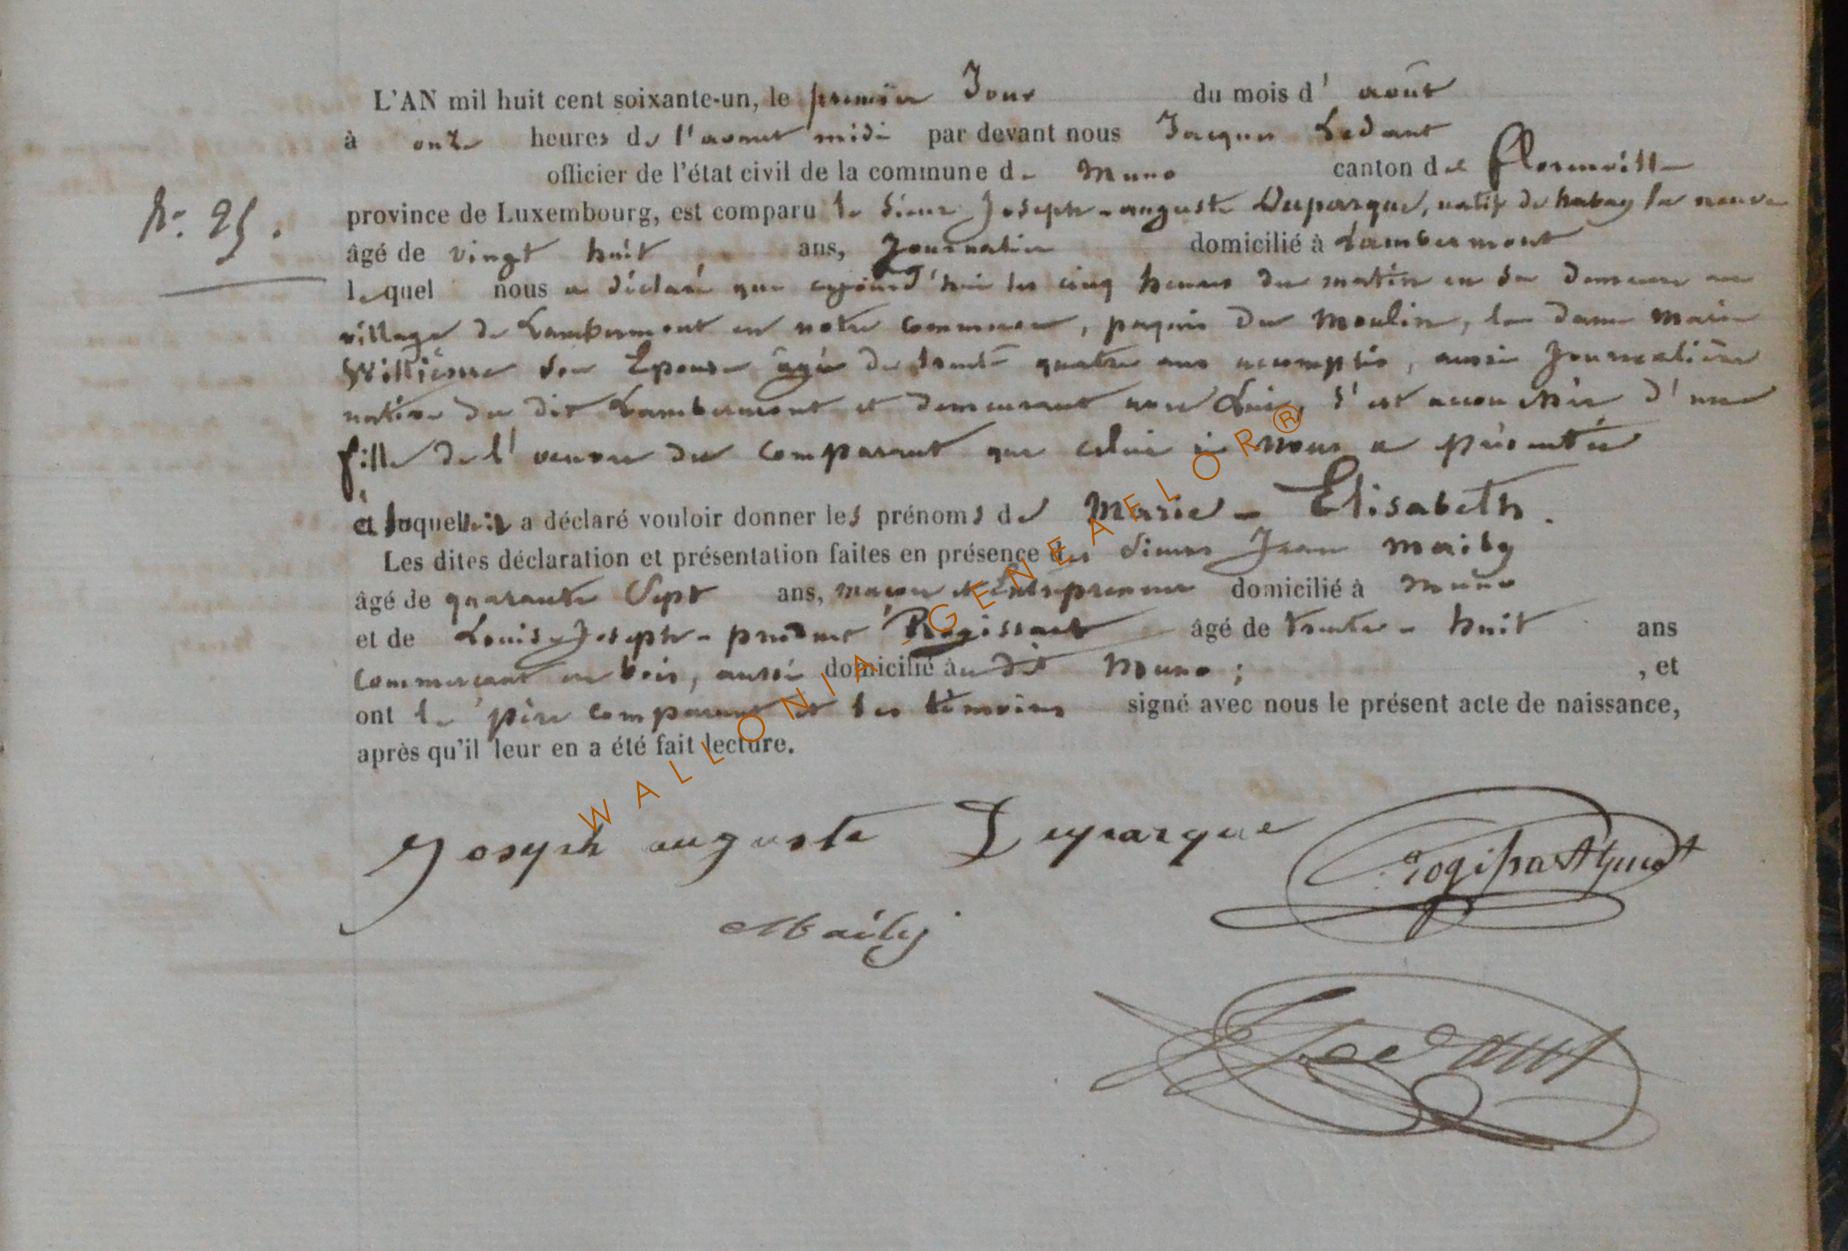 L'AN mil huit cent soixante-un, le premier Jour du mois d' août
à onze heures de l'avant midi par devant nous Jacques Ledant
officier de l'état civil de la commune de Muno canton de Florenville
N° 25.
province de Luxembourg, est comparu le sieur Joseph-auguste Duparque, natif de habay la neuve
âgé de vingt huit ans, Journalier domicilié à Lambermont
lequel nous a déclaré que aujourd'hui les cinq heures du matin en sa demeure au
village de Lambermont en notre commune, du Moulin, la dame Marie
son Epouse âgée de trente quatre ans accomplis, aussi Journalière
native du dit Lambermont et demeurant avec Lui, s'est accouchée d'une
fille de l' du comparant que celui ci nous a présentée
et laquelle il a déclaré vouloir donner les prénoms de Marie-Elisabeth.
Les dites déclaration et présentation faites en présence des sieurs Jean Maily
âgé de quarante Sept ans, maçon et Entrepreneur domicilié à Muno
et de Louis-Joseph- Rogissart âgé de trente-huit ans
commerçant en bois, aussi domicilié au dit Muno; , et
ont le père comparant et les témoins signé avec nous le présent acte de naissance,
après qu'il leur en a été fait lecture.
Joseph auguste Duparque
Maily
Ledant
WALLONIA-GENEAELOR®